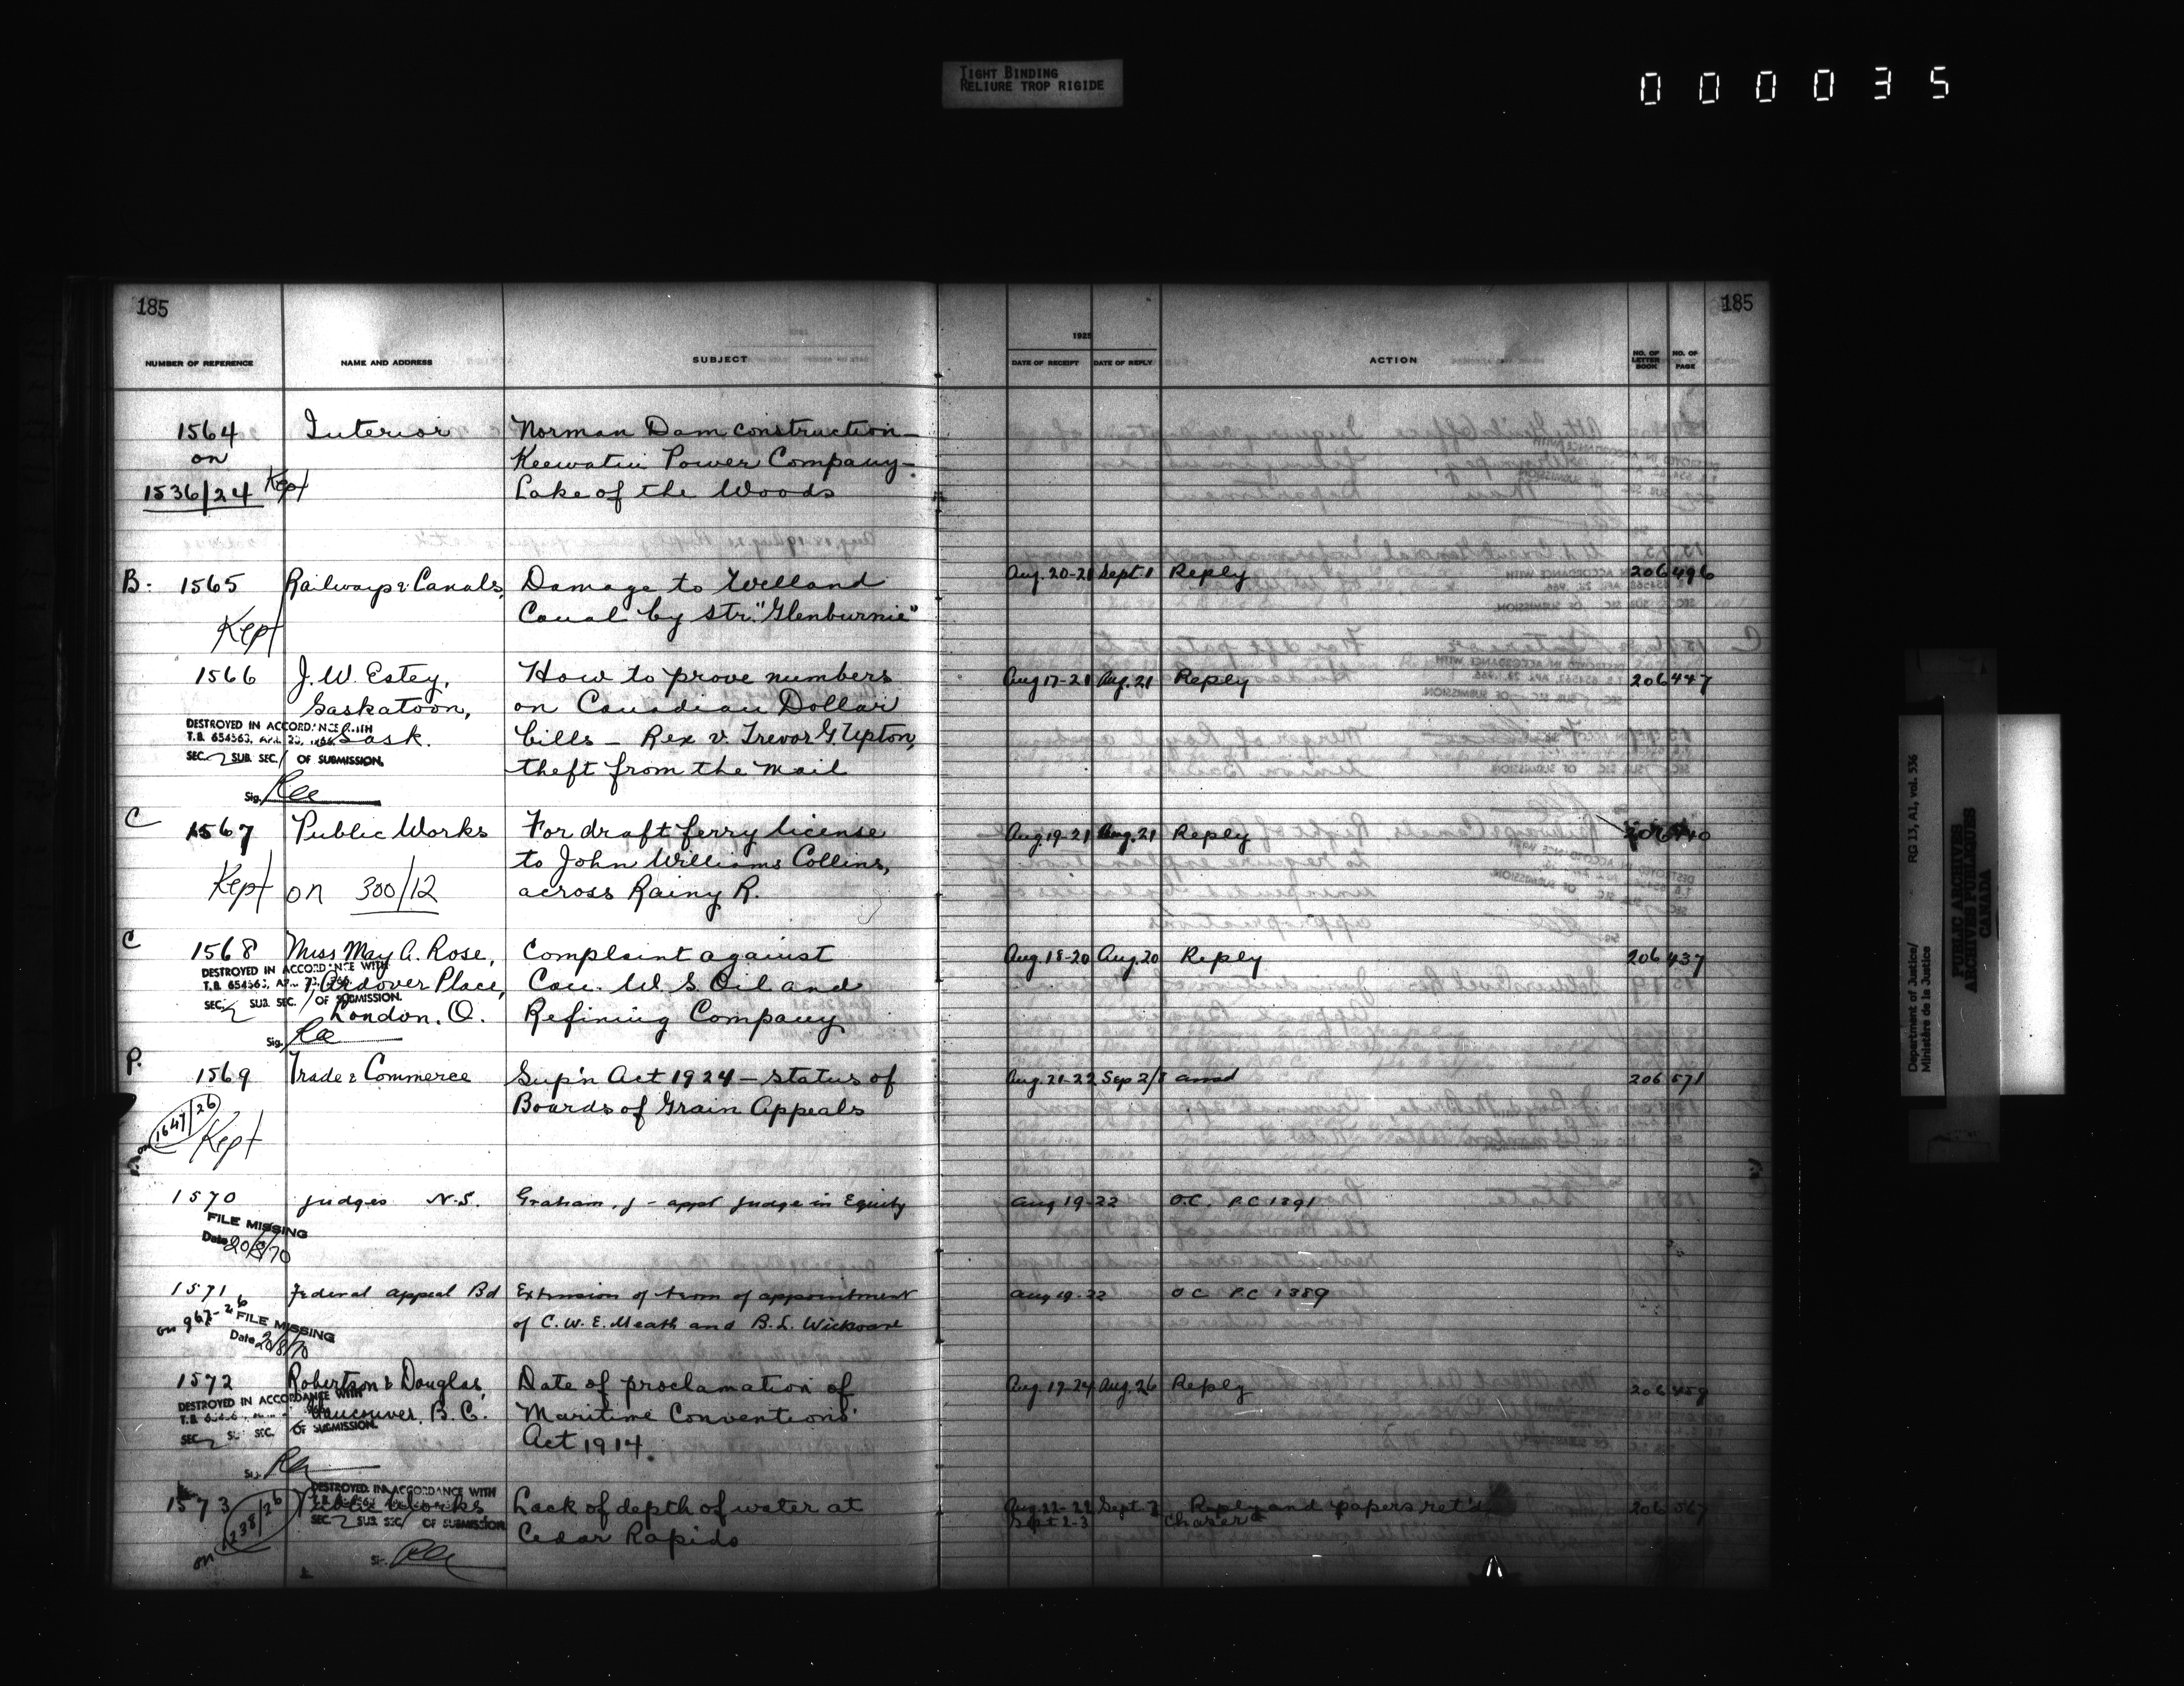 TIGHT BINDING
RELIURE TROP RIGIDE
000035
185
185
NUMBER OF REFERENCE NAME AND ADDRESS SUBJECT 1925 DATE OF RECEIPT DATE OF REPLY ACTION NO. OF LETTER BOOK NO. OF PAGE
1564 Interior Norman Dam construction—
on Keewatin Power Company—
1536/24 Kept Lake of the Woods
B: 1565 Railways & Canals, Damage to Welland Aug. 20-21 Sept 1 Reply 206 496
Kept Canal by str. "Glenburnie"
1566 J. W. Estey, How to prove numbers Aug 17-21 Aug. 21 Reply 206 447
Saskatoon, on Canadian Dollar
Sask. bills — Rex v. Trevor G. Upton,
DESTROYED IN ACCORDANCE WITH
T.B. 654563, APR. 23, 1966
SEC. 2 SUB. SEC. / OF SUBMISSION.
theft from the mail
Sig.
C 1567 Public Works For draft ferry license Aug. 19-21 Aug. 21 Reply 206 440
to John Williams Collins,
Kept on 300/12 across Rainy R.
C 1568 Miss May A. Rose, Complaint against Aug. 18-20 Aug. 20 Reply 206 437
DESTROYED IN ACCORD'NCE WITH
T.B. 654563,
Place, Can. W. S. Oil and
SEC. 2 SUB. SEC. / OF SUBMISSION.
London, O. Refining Company
Sig.
P. 1569 Trade & Commerce Sup'n Act 1924 — status of Aug. 21-22 Sep 2/8 amsd 206 571
Boards of Grain Appeals
on 1647/26 Kept
1570 Judges N.S. Graham, J — appt Judge in Equity Aug 19-22 O.C. P.C 1391
FILE MISSING
Date 20/8/70
1571 Federal Appeal Bd Extension of term of appointment Aug 19-22 O C P.C 1389
on 967-26 of C. W. E. Meath and B. L. Wickware
FILE MISSING
Date 20/8/70
1572 Robertson & Douglas, Date of proclamation of Aug. 19-24 Aug. 26 Reply 206 459
DESTROYED IN ACCORDANCE WITH
Vancouver, B.C. Maritime Conventions
SEC. 2 SUB. SEC. / OF SUBMISSION.
Act 1914.
Sig.
1573 Public Works Lack of depth of water at Aug. 22-22 Sept. 2 Reply and papers ret'd 206 567
DESTROYED IN ACCORDANCE WITH
SEC. 2 SUB. SEC. / OF SUBMISSION
on 238/26 Cedar Rapids Sept 2-3
Sig.
Department of Justice/
Ministère de la Justice
RG 13, A1, vol. 536
PUBLIC ARCHIVES
ARCHIVES PUBLIQUES
CANADA